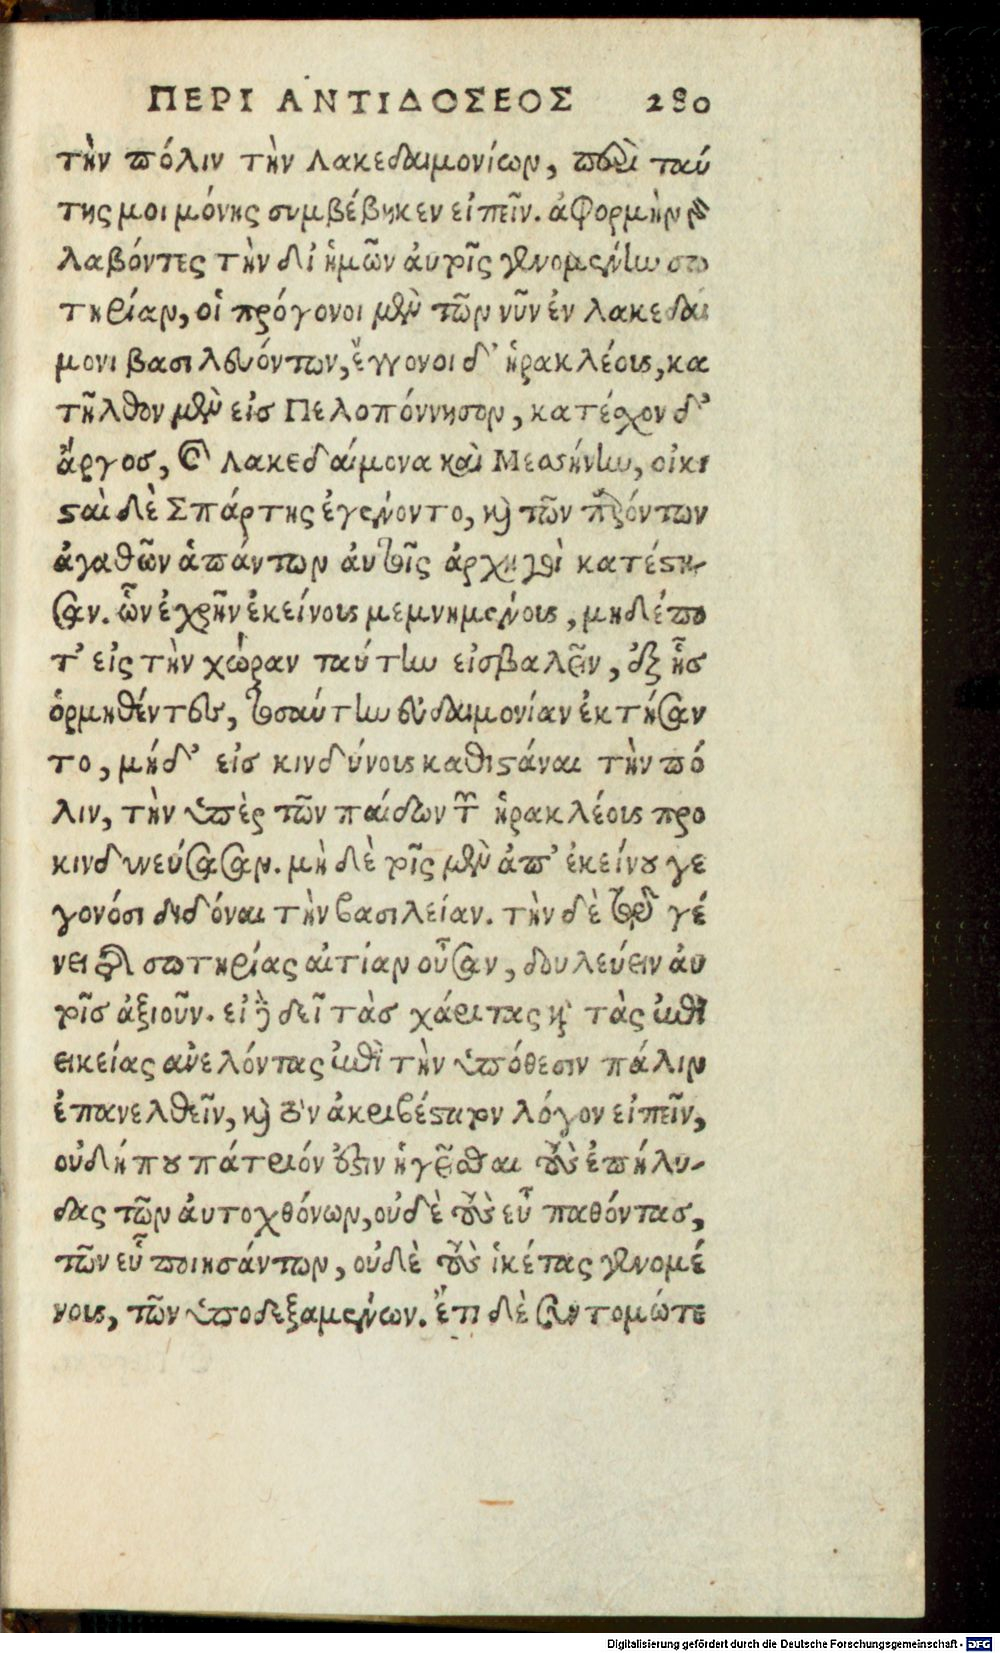 ΠΕΡΙ ΑΝΤΙΔΟΣΕΟΣ 280
τὴν πόλιν τὴν Λακεδαιμονίων, περὶ ταύ
της μοι μόνης συμβέβηκεν εἰπεῖν. ἀφορμὴν γὰρ
λαβόντες τὴν δι ἡμῶν ἀυτοῖς γενομένην σω
τηρίαν, οἱ πρόγονοι μὲν τῶν νῦν ἐν λακεδαι
μονι βασιλευόντων, ἔγγονοι δ' ἡρακλέους, κα
τῆλθον μὲν εἰσ Πελοπόννησον, κατέσχον δ'
ἄργοσ, καὶ Λακεδαίμονα καὶ Μεσήνην, οἰκι
σαὶ δὲ Σπάρτης ἐγένοντο, καὶ τῶν παρόντων
ἀγαθῶν ἁπάντων ἀυτοῖς ἀρχηγοὶ κατέστη-
σαν. ὧν ἐχρῆν ἐκείνους μεμνημένους, μηδέπο
τ' εἰς τὴν χώραν ταύτην εἰσβαλεῖν, ἐξ ἧσ
ὁρμηθέντες, τοσαύτην εὐδαιμονίαν ἐκτήσαν
το, μήδ' εἰσ κινδύνους καθιστάναι τὴν πό
λιν, τὴν ὑπὲρ τῶν παίδων τῶν ἡρακλέους προ
κινδυνεύσασαν. μὴ δὲ τοῖς μὲν ἀπ' ἐκείνου γε
γονόσι διδόναι τὴν βασιλείαν. τὴν δὲ τῷ γέ
νει τῆς σωτηρίας αἰτίαν οὖσαν, δουλεύειν ἀυ
τοῖσ ἀξιοῦν. εἰ δὲ δεῖ τὰσ χάριτας καὶ τὰς ἐπι
εικείας ἀνελόντας ἐπὶ τὴν ὑπόθεσιν πάλιν
ἐπανελθεῖν, καὶ τὸν ἀκριβέστατον λόγον εἰπεῖν,
οὐδήπου πάτριόν ἐστιν ἡγεῖσθαι τοὺς ἐπήλυ-
δας τῶν ἀυτοχθόνων, οὐδὲ τοὺς εὖ παθόντασ,
τῶν εὖ ποιησάντων, οὐδὲ τοὺς ἱκέτας γενομέ
νους, τῶν ὑποδεξαμένων. ἔτι δὲ συντομώτε
Digitalisierung gefördert durch die Deutsche Forschungsgemeinschaft - DFG